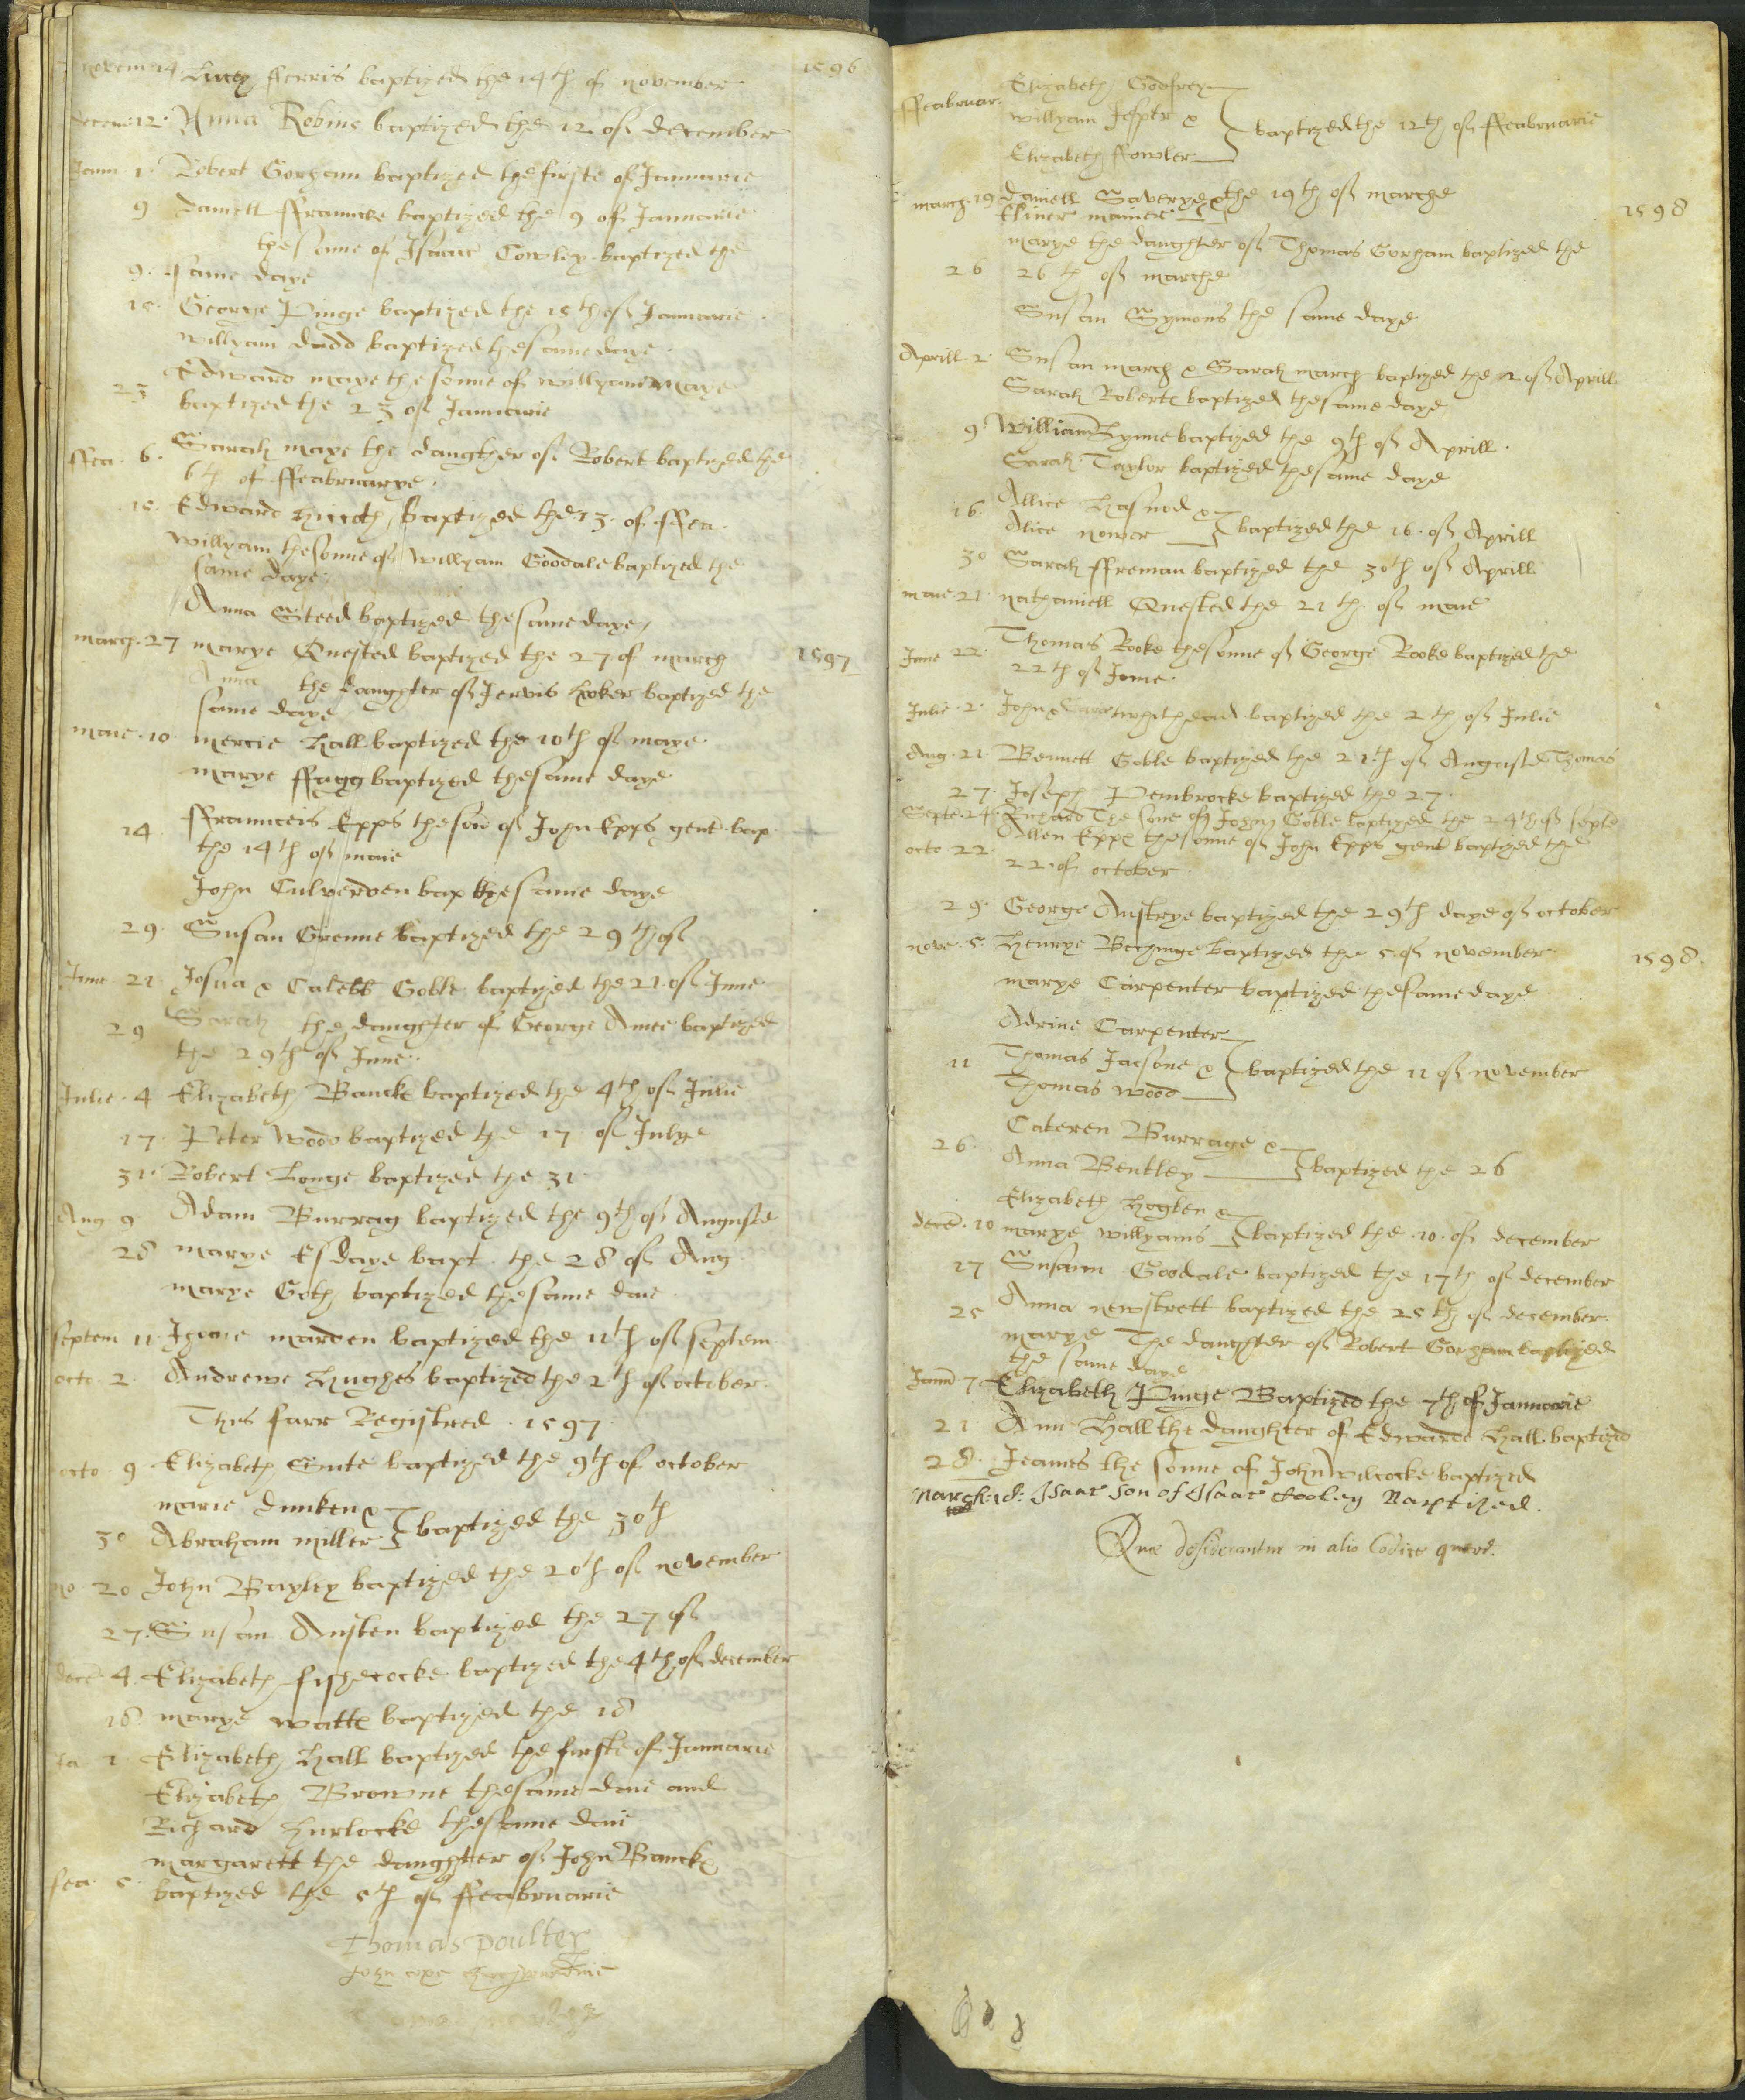 novem 14 Lucey fferris baptized the 14th of november 1596
decem 12 Anna Robins baptized the 12 of december
Janu 1 Robert Gorham baptized the firste of Januarie
9 daniell ffrauncke baptized the 9 of Januarie
the sonne of Isaac Cowley baptized the
9 same daye
15 George Pinge baptized the 15th of Januarie
willyam dodd baptized the same daye
Edward maye the sonne of willyam maye
23 baptized the 23 of Januarie
ffea 6 Sarah maye the daughter of Robert baptized the
6th of ffeabruarye
15 Edward baptized the 13 of ffea
willyam the sonne of willyam Goodale baptized the
same daye
Anna Steed baptized the same daye
march 27 marye Quested baptized the 27 of march 1597
Anna the daughter of Jervis Hoker baptized the
same daye
maie 10 mercie Hall baptized the 10th of maye
marye ffagg baptized the same daye
ffraunceis Epps the son of John Epps gent bap
14 the 14th of maie
John Culverden bap the same daye
29 Susan Grenne baptized the 29th of
June 21 Josua & Calebb Goble baptized the 21 of June
29 Sarah the daughter of George Amee baptized
the 29th of June
Julie 4 Elizabeth Bancke baptized the 4th of Julie
17 Peter Wood baptized the 17 of Julye
31 Robert Longe baptized the 31
Aug 9 Adam Burrag baptized the 9th of Auguste
28 marye Esdaye bapt the 28 of Aug
marye Geth baptized the same daie
septem 11 marden baptized the 11th of septem
octo 2 Andrewe Hughes baptized the 2th of october
This farr Registred 1597
octo 9 Elizabeth baptized the 9th of october
marie dunken &
30 Abraham miller } baptized the 30th
no 20 John Bayley baptized the 20th of november
27 Susan Austen baptized the 27 of
dece 4 Elizabeth fishecocke baptized the 4th of december
18 marye watte baptized the 18
Ja 1 Elizabeth Hall baptized the firste of Januarie
Elizabeth Browne the same daie and
Richard Hurlocke the same daie
margarett the daughter of John Bancke
fea 5 baptized the 5th of ffeabruarie
Thomas Poulter
John cope
Elizabeth Godfrey
ffeabruar willyam & } baptized the 12th of ffeabruarie
Elizabeth ffowler
march 19 daniell Saverye & the 19th of marche
Eliner 1598
marye the daughter of Thomas Gorham baptized the
26 26th of marche
Susan Symons the same daye
Aprill 2 Susan march & Sarah march baptized the 2 of Aprill
Sarah Roberte baptized the same daye
9 William Lynne baptized the 9th of Aprill
Sarah Taylor baptized the same daye
Allice Hasnod &
16 Alice nower } baptized the 16 of Aprill
30 Sarah ffreman baptized the 30th of Aprill
maie 21 nathaniell Quested the 21th of maie
June 22 Thomas Rooke the sonne of George Rooke baptized the
22th of June
Julie 2 John whithead baptized the 2th of Julie
Aug 21 Bennett Goble baptized the 21th of Auguste Thomas
27 Joseph Pembrocke baptized the 27
Septe 24 Richard The sone of John Goble baptized the 24th of Septe
Allen Epps the sonne of John Epps gent baptized the
octo 22 22 of october
29 George Austrye baptized the 29th daye of october
nove 5 Henrye baptized the 5 of november
1598
marye Carpenter baptized the same daye
Adrine Carpenter
11 Thomas Jacsone & } baptized the 11 of november
Thomas wood
Cateren Burrage &
26 Anna Bentley } baptized the 26
Elizabeth Hogben &
dece 10 marye willyams } baptized the 10 of december
17 Susann Goodale baptized the 17th of december
25 Anna newstrett baptized the 25th of december
marye The daughter of Robert Gorham baptized
the same daye
Janu 7 Elizabeth Pinge Baptized the 7th of Januarie
21 Ann Hall the daughter of Edwarde Hall baptized
28 Jeames the sonne of John Wilcocke baptized
March: 18: Isaac son of Isaac Cooley Baptized.
Quæ desiderantur in alio Codice quære.